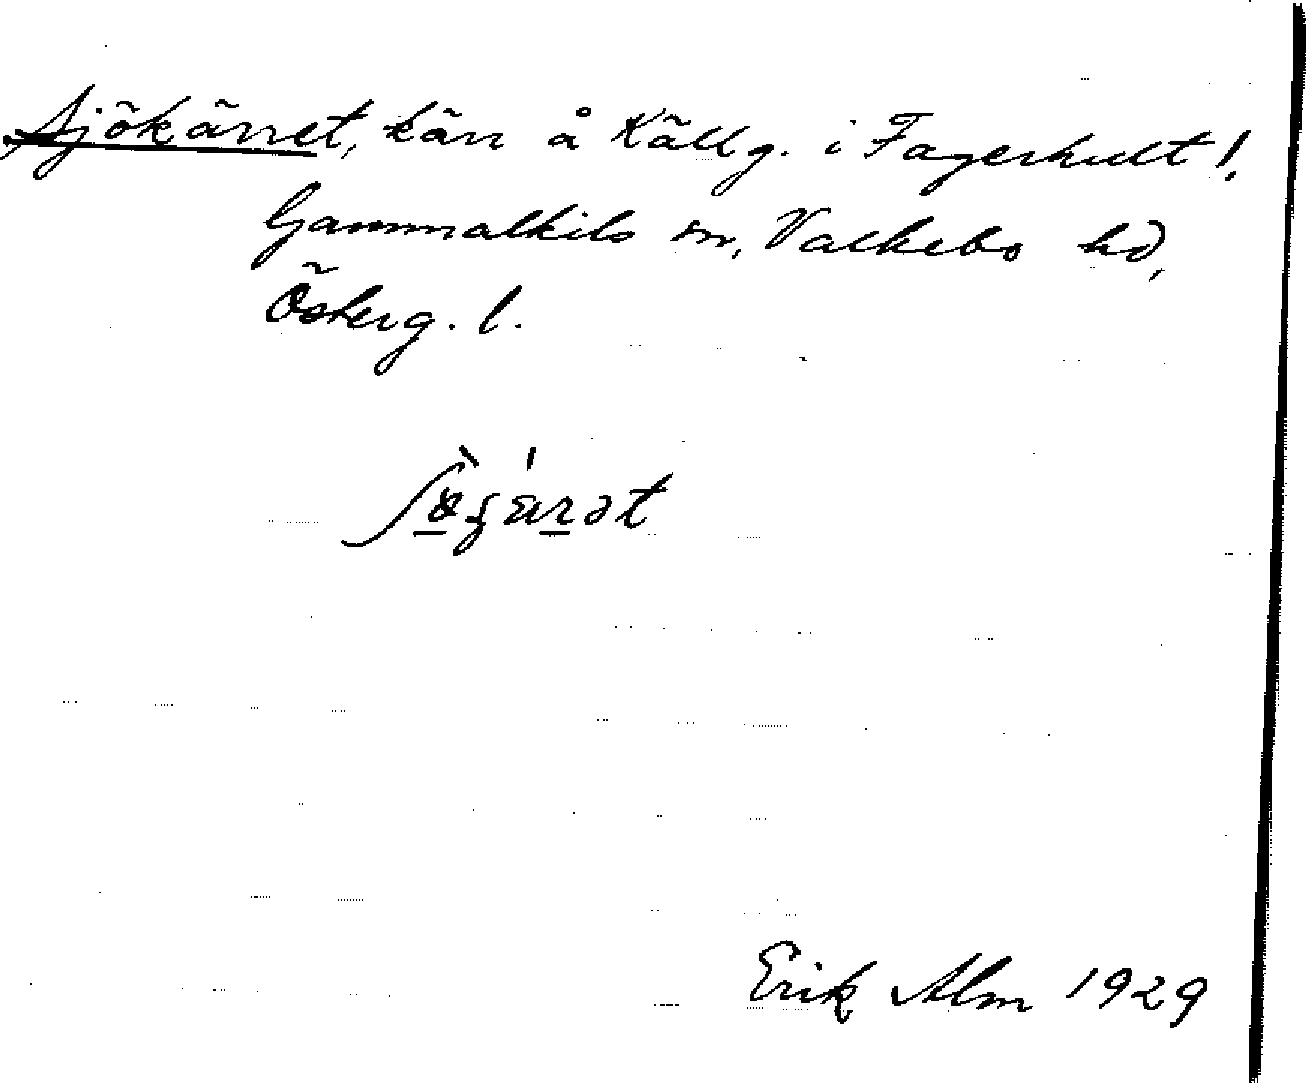 Sjökärret, kärr å Källg. i Fagerhult!,
Gammalkils sn, Valkebo hd,
Österg. l.
Erik Alm 1929